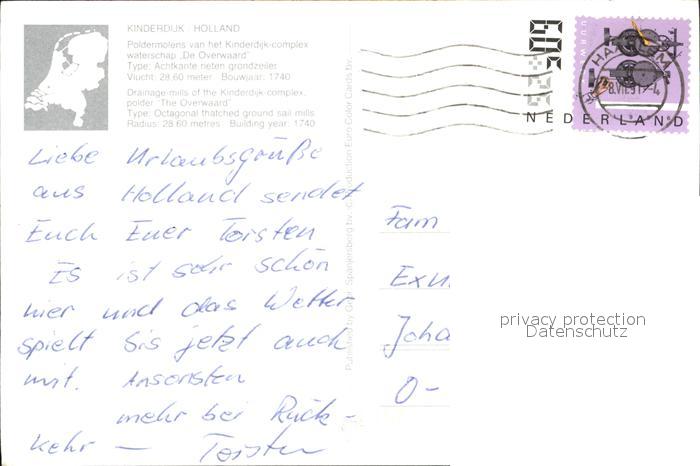 KINDERDIJK - HOLLAND
Poldermolens van het Kinderdijk-complex
waterschap „De Overwaard"
Type: Achtkante rieten grondzeiler
Vlucht: 28.60 meter Bouwjaar: 1740
Drainage-mills of the Kinderdijk-complex,
polder "The Overwaard"
Type: Octagonal thatched ground sail mills
Radius: 28.60 metres Building year: 1740
60c
NEDERLAND
Liebe Urlaubsgrüße
aus Holland sendet
Euch Euer Torsten
Es ist sehr schön
hier und das Wetter
spielt bis jetzt auch
mit. Ansonsten
mehr bei Rück-
kehr — Torsten
Fam
Joha
O-
privacy protection
Datenschutz